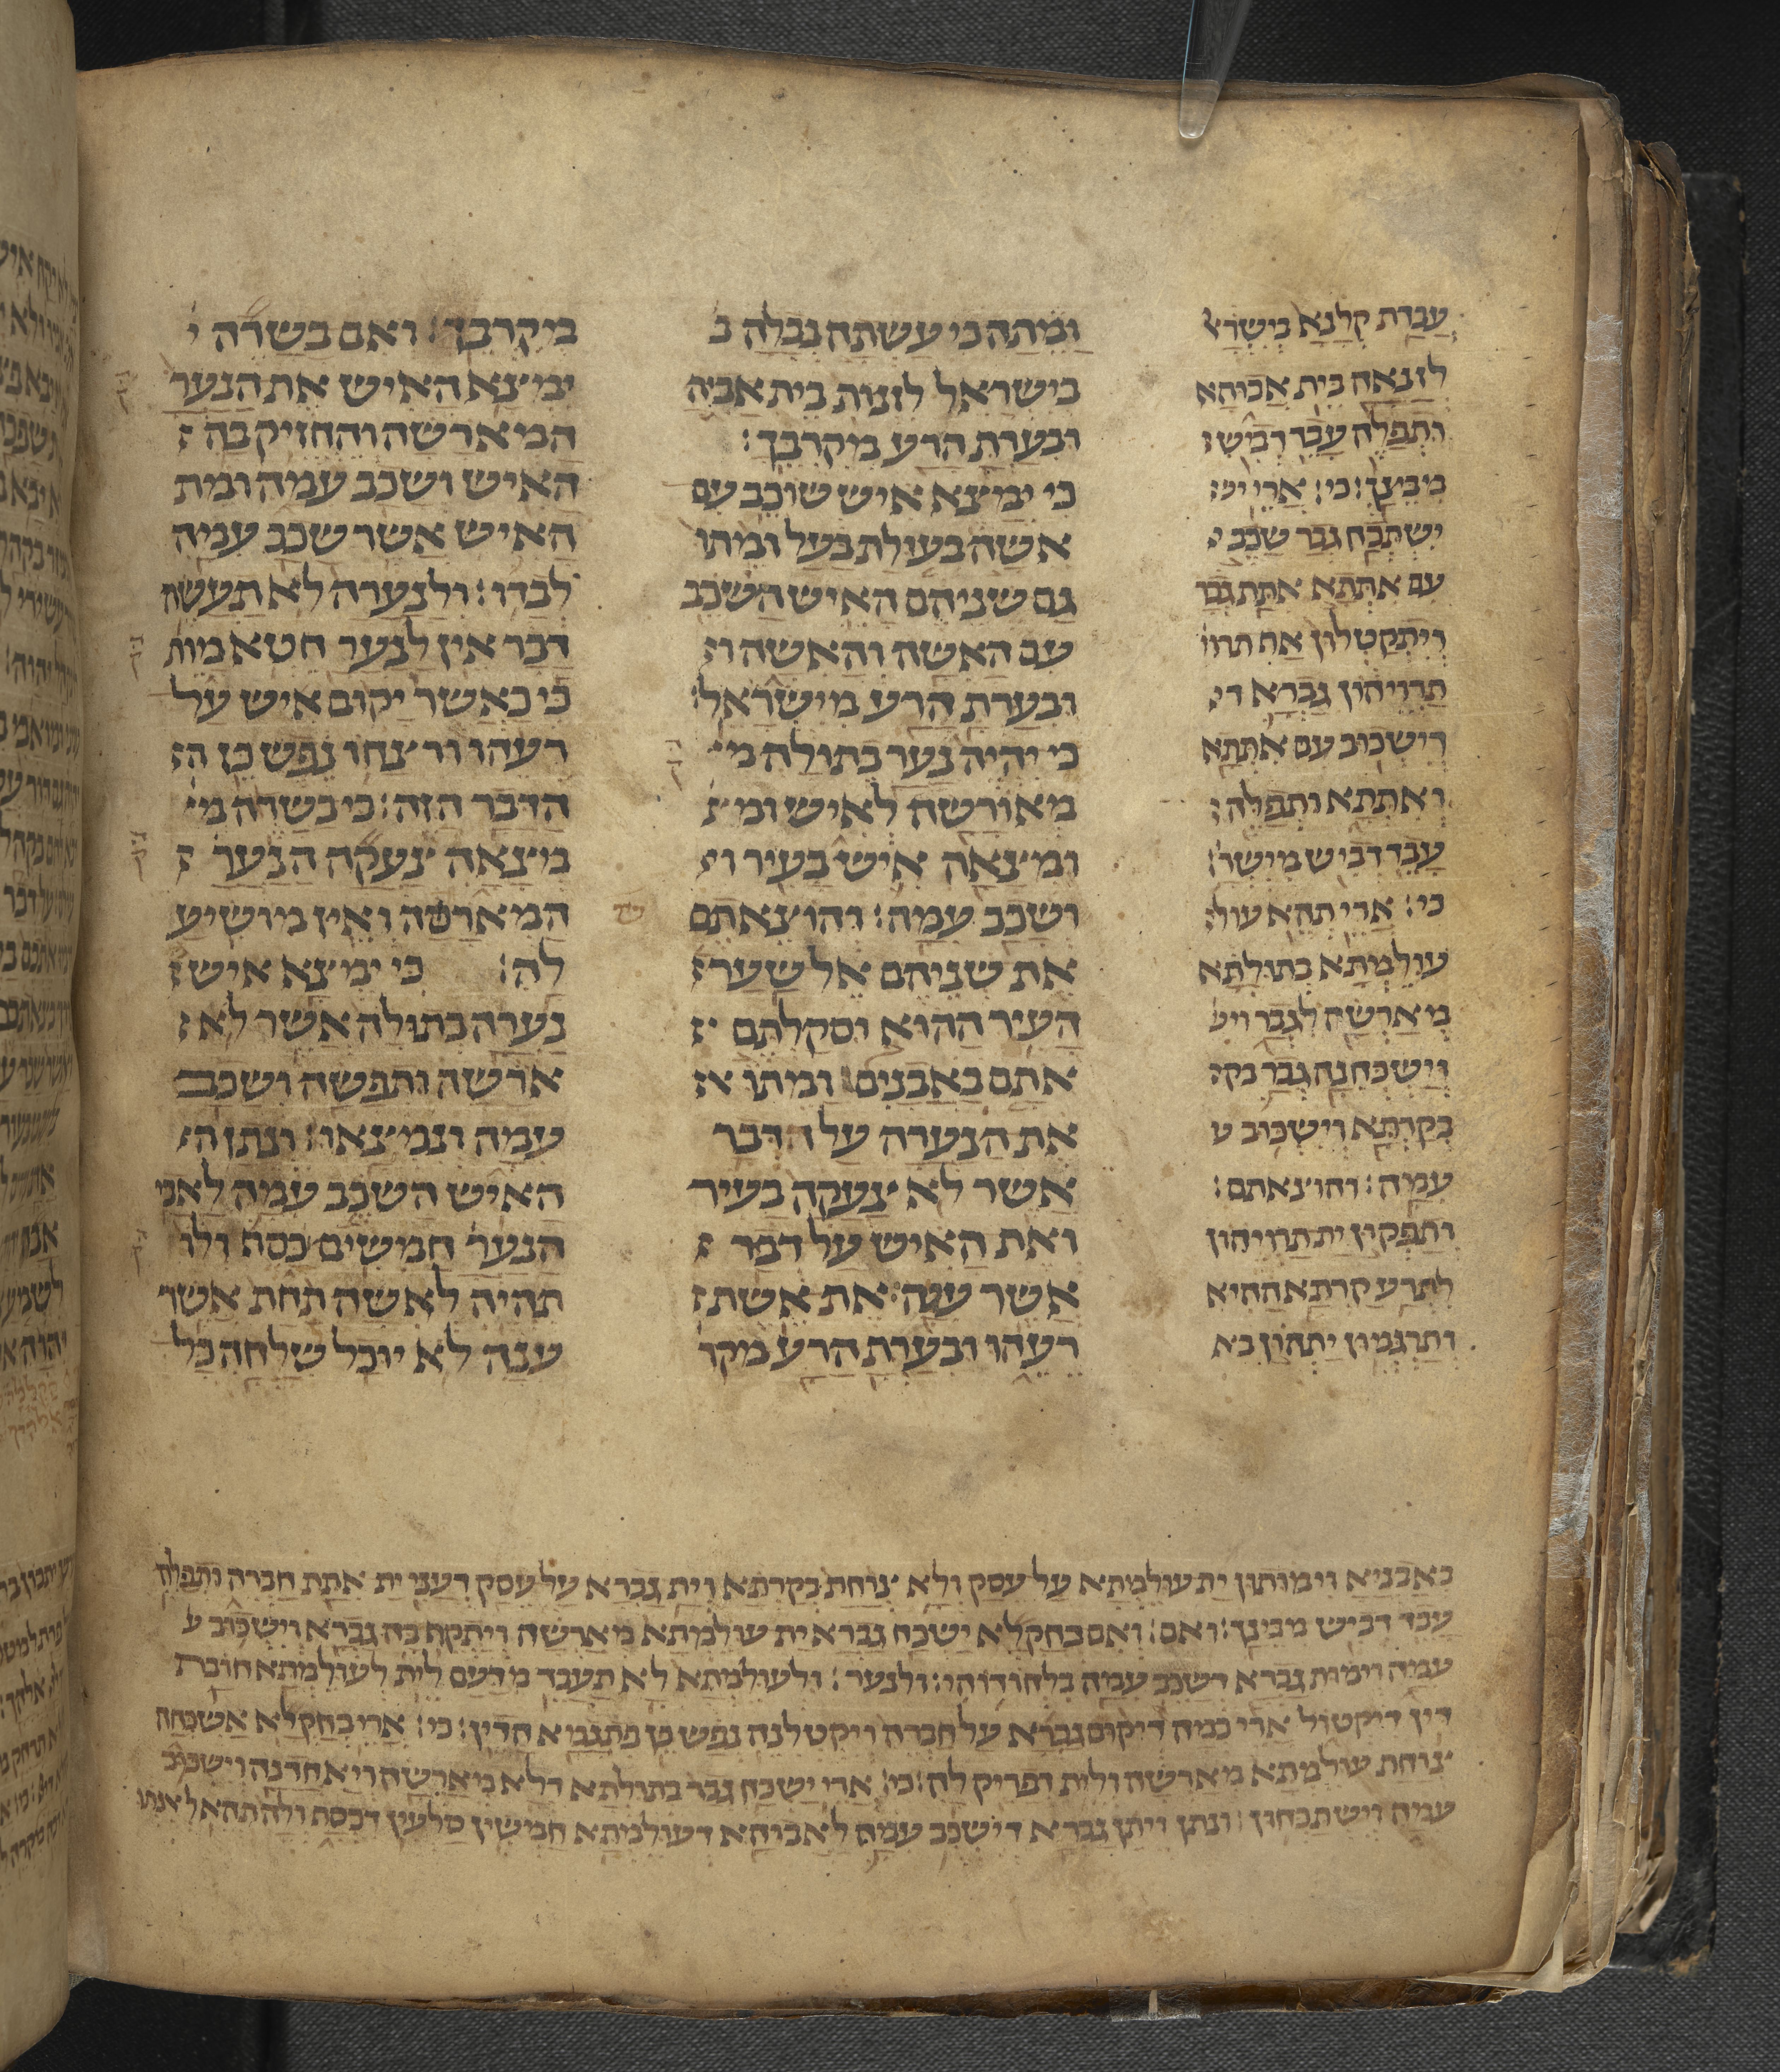 עבדת קלנא בישראל
לזנאה בית אבוהא
ותפלה עבד דביש
מבינך׃ כי׃ ארי
ישתכח גבר שכב
עם אתתא אתת גבר
ויתקטלון אף תרו
תרויהון גברא ד
דישכוב עם אתתא
ואתתא ותפלה
עבד דביש מישר
כי׃ ארי תהא עול
עולמתא בתולתא
מארשה לגבר וי
וישכחנה גבר בק
בקרתא וישכוב ע
עמה׃ והוצאתם׃
ותפקון ית תרויהון
לתרע קרתא ההיא
ותרגמון יתהון בא
ומתה כי עשתה נבלה ב
בישראל לזנות בית אביה
ובערת הרע מקרבך׃
כי ימצא איש שוכב עם
אשה בעולת בעל ומתו
גם שניהם האיש השכב
עם האשה והאשה ו
ובערת הרע מישראל׃
כי יהיה נער בתולה מ
מאורשה לאיש ומ
ומצאה איש בעיר ו
ושכב עמה׃ והוצאתם
את שניהם אל שער
העיר ההוא וסקלתם
אתם באבנים ומתו א
את הנערה על הדבר
אשר לא צעקה בעיר
ואת האיש על דבר
אשר ענה את אשת
רעהו ובערת הרע מקר
מקרבך׃ ואם בשדה י
ימצא האיש את הנער
המארשה והחזיק בה
האיש ושכב עמה ומת
האיש אשר שכב עמה
לבדו׃ ולנערה לא תעשה
דבר אין לנער חטא מות
כי כאשר יקום איש על
רעהו ורצחו נפש כן ה
הדבר הזה׃ כי בשדה מ
מצאה צעקה הנער
המארשה ואין מושיע
לה׃ כי ימצא איש
נערה בתולה אשר לא
ארשה ותפשה ושכב
עמה ונמצאו׃ ונתן ה
האיש השכב עמה לאבי
הנער חמשים כסף ולו
תהיה לאשה תחת אשר
ענה לא יוכל שלחה כל
באבניא וימותון ית עולמתא על עסק דלא צוחת בקרתא וית גברא על עסק דעני ית אתת חברה ותפלה
עבד דביש מבינך׃ ואם׃ ואם בחקלא ישכח גברא ית עולמתא מארשה ויתקף בה גברא וישכוב ע
עמה וימות גברא דשכב עמה בלחודוהי׃ ולנער׃ ולעולמתא לא תעבד מדעם לית לעולמתא חובת
דין דקטול ארי כמה דיקום גברא על חברה ויקטלנה נפש כן פתגמא הדין׃ כי׃ ארי בחקלא אשכחה
צוחת עולמתא מארשה ולית דפריק לה׃ כי׃ ארי ישכח גבר בתולתא דלא מארשה ויאחדנה וישכוב
עמה וישתכחון׃ ונתן ויתן גברא דישכב עמה לאבוהא דעולמתא חמשין סלעין דכסף ולה תהא לאתו